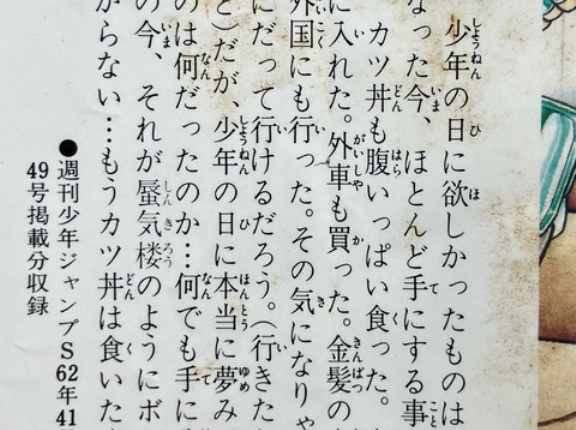 少年の日に欲しかったものは
なった今、ほとんど手にする事
カツ丼も腹いっぱい食った。
に入れた。外車も買った。金髪の
外国にも行った。その気になりゃ
にだって行けるだろう。(行きた
ど)だが、少年の日に本当に夢み
のは何だったのか…何でも手に
の今、それが蜃気楼のようにボ
からない…もうカツ丼は食いた
●週刊少年ジャンプS62年41
49号掲載分収録